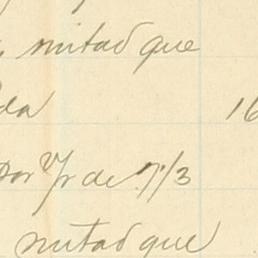 mitad que
da 16
por Yr de 7/3
mitad que